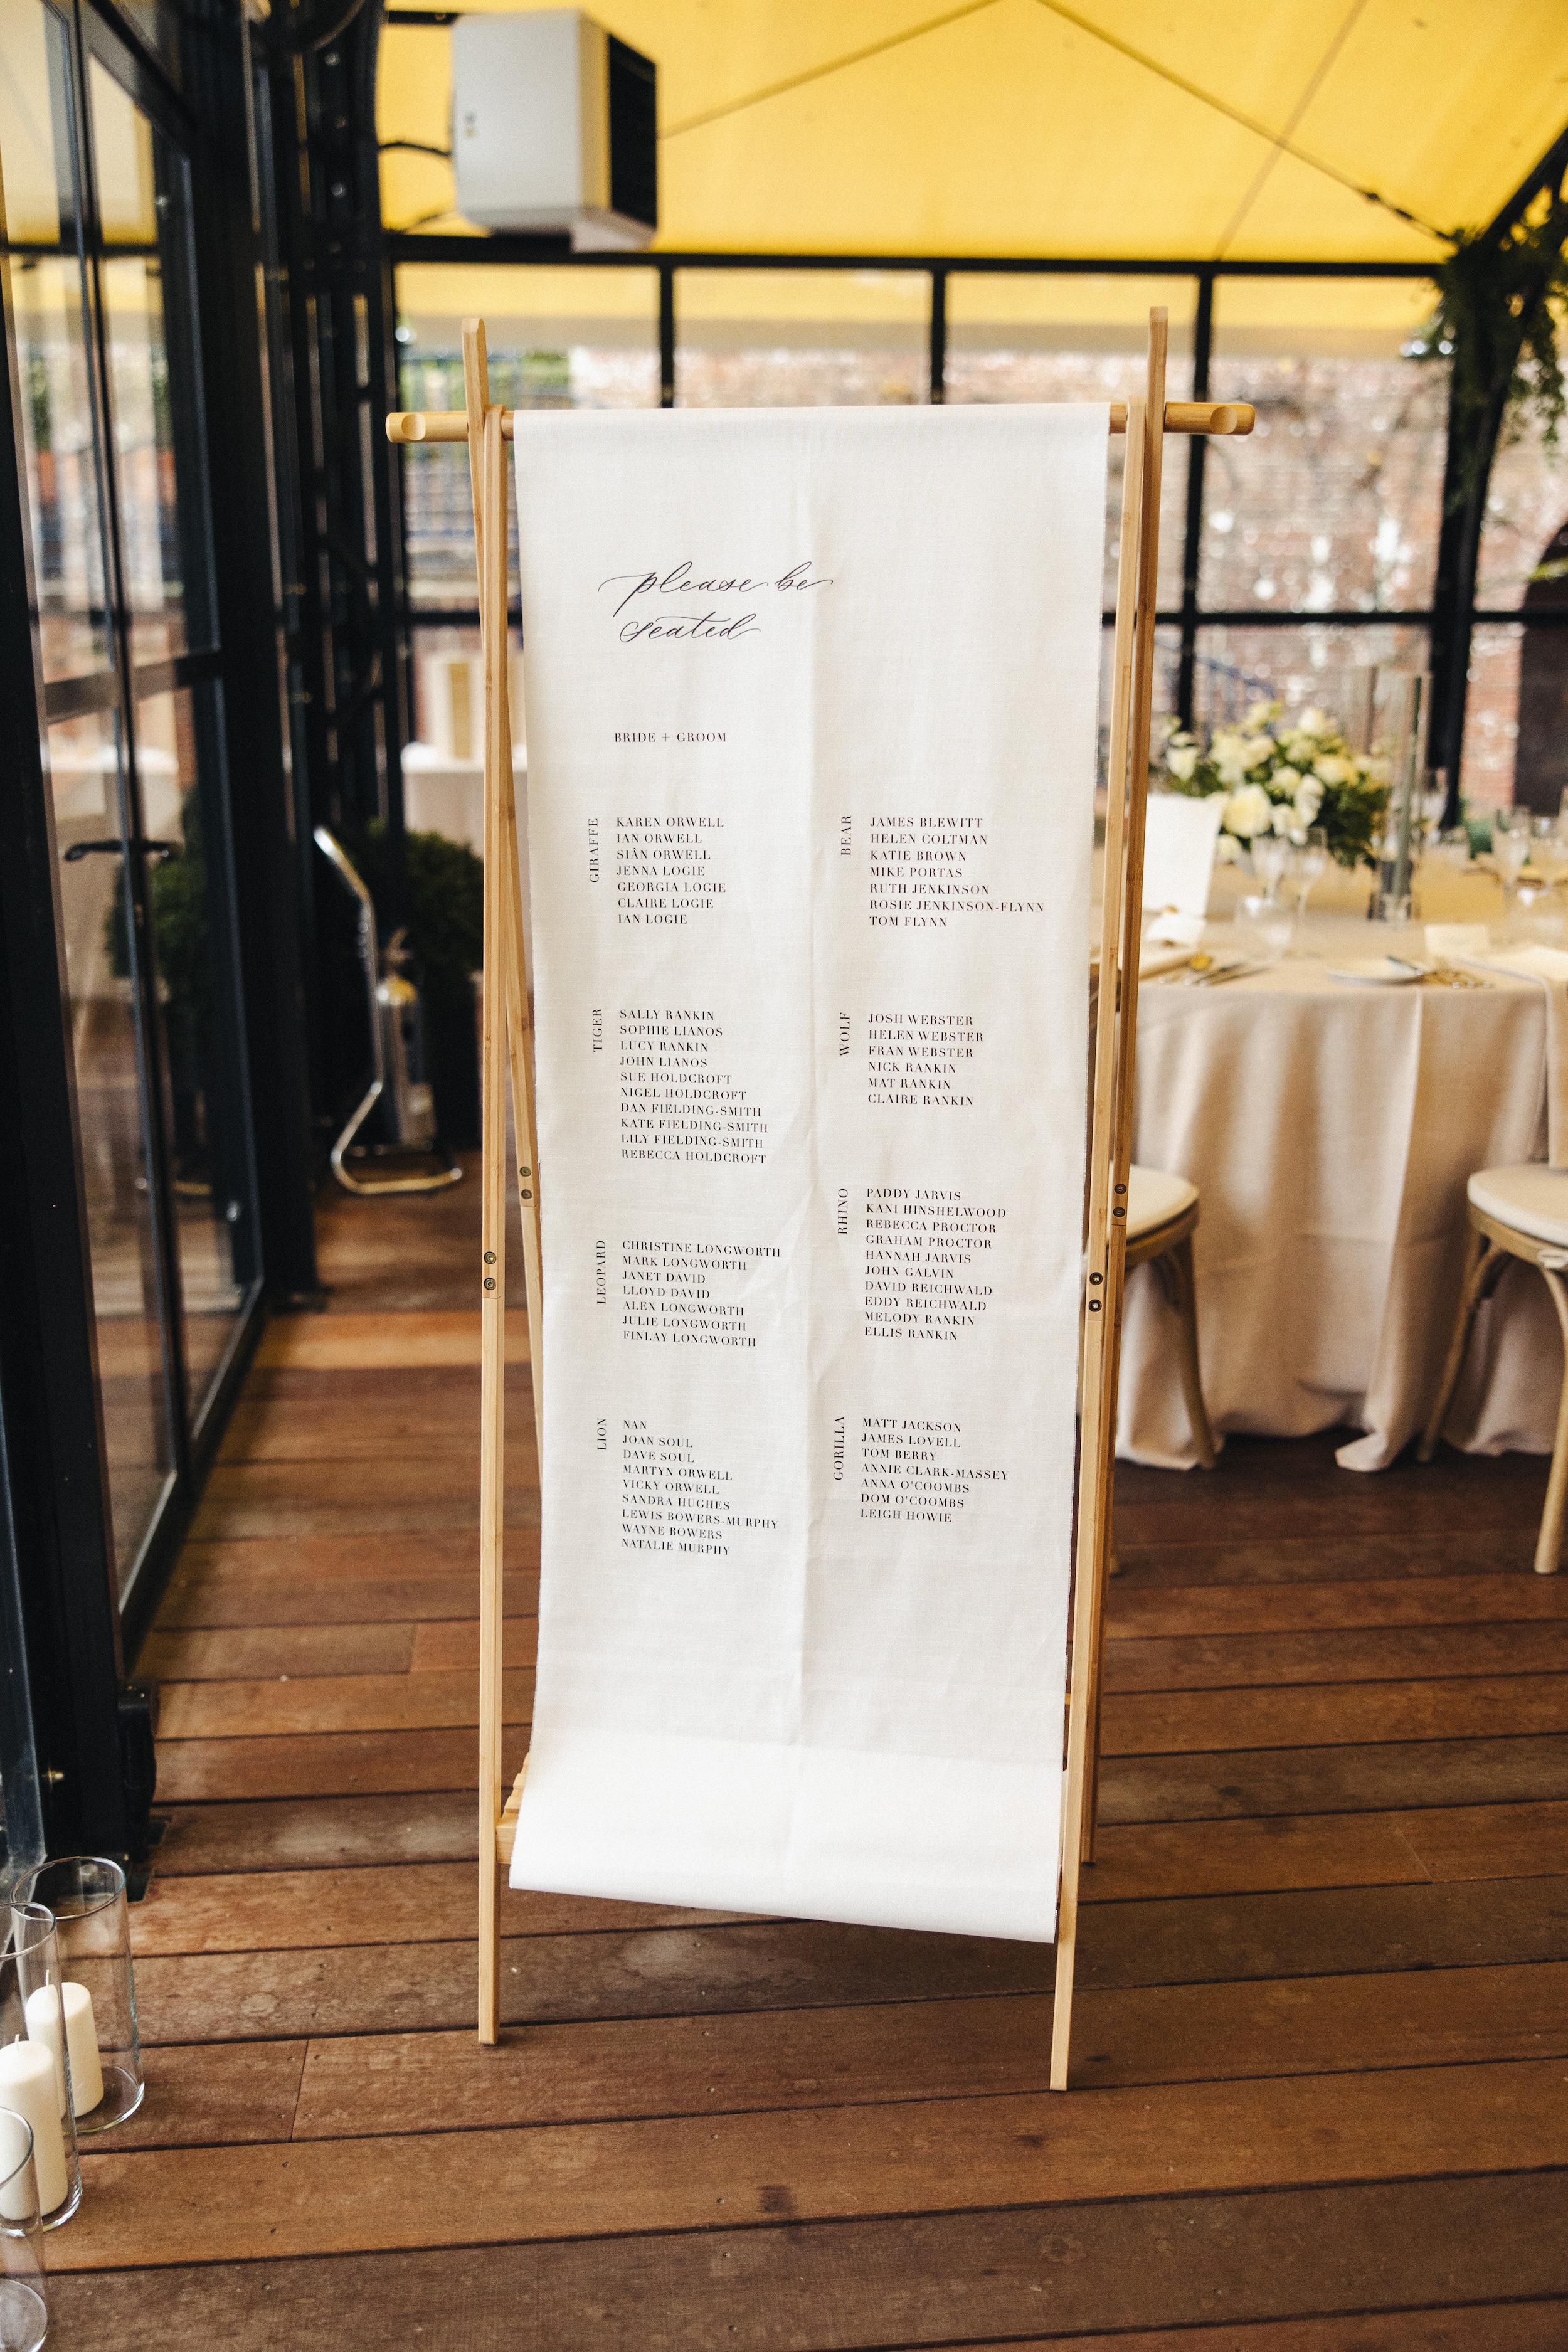 please be
seated
BRIDE + GROOM
GIRAFFE
KAREN ORWELL
IAN ORWELL
SIÂN ORWELL
JENNA LOGIE
GEORGIA LOGIE
CLAIRE LOGIE
IAN LOGIE
TIGER
SALLY RANKIN
SOPHIE LIANOS
LUCY RANKIN
JOHN LIANOS
SUE HOLDCROFT
NIGEL HOLDCROFT
DAN FIELDING-SMITH
KATE FIELDING-SMITH
LILY FIELDING-SMITH
REBECCA HOLDCROFT
LEOPARD
CHRISTINE LONGWORTH
MARK LONGWORTH
JANET DAVID
LLOYD DAVID
ALEX LONGWORTH
JULIE LONGWORTH
FINLAY LONGWORTH
LION
NAN
JOAN SOUL
DAVE SOUL
MARTYN ORWELL
VICKY ORWELL
SANDRA HUGHES
LEWIS BOWERS-MURPHY
WAYNE BOWERS
NATALIE MURPHY
BEAR
JAMES BLEWITT
HELEN COLTMAN
KATIE BROWN
MIKE PORTAS
RUTH JENKINSON
ROSIE JENKINSON-FLYNN
TOM FLYNN
WOLF
JOSH WEBSTER
HELEN WEBSTER
FRAN WEBSTER
NICK RANKIN
MAT RANKIN
CLAIRE RANKIN
RHINO
PADDY JARVIS
KANI HINSHELWOOD
REBECCA PROCTOR
GRAHAM PROCTOR
HANNAH JARVIS
JOHN GALVIN
DAVID REICHWALD
EDDY REICHWALD
MELODY RANKIN
ELLIS RANKIN
GORILLA
MATT JACKSON
JAMES LOVELL
TOM BERRY
ANNIE CLARK-MASSEY
ANNA O'COOMBS
DOM O'COOMBS
LEIGH HOWIE